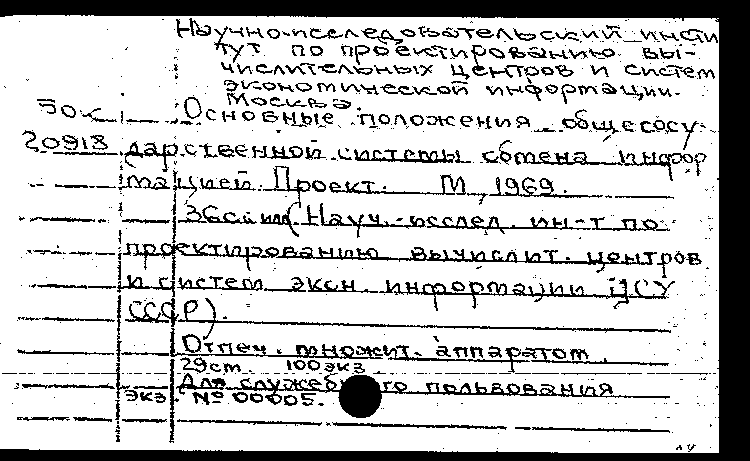 Научно-исследовательский инсти
тут по проектированию вы-
числительных центров и систем
экономической информации.
Москва.
50к Основные положения общегосу-
20918 дарственной системы обмена инфор
мацией. Проект. М, 1969.
36с. (Науч.-исслед. ин-т по
проектированию вычислит. центров
и систем экон. информации ЦСУ
СССР).
Отпеч. множит. аппаратом.
29см. 100 экз
Для служебного пользования
экз. № 00005.